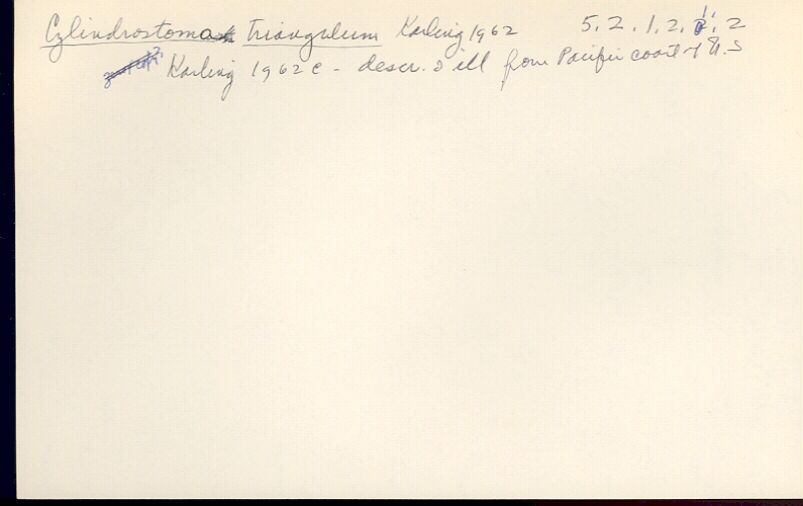 Cylindrostoma triangulum Karling 1962 5.2.1.2.1.2
Karling 1962c - descr. & ill from Pacific coast of U.S